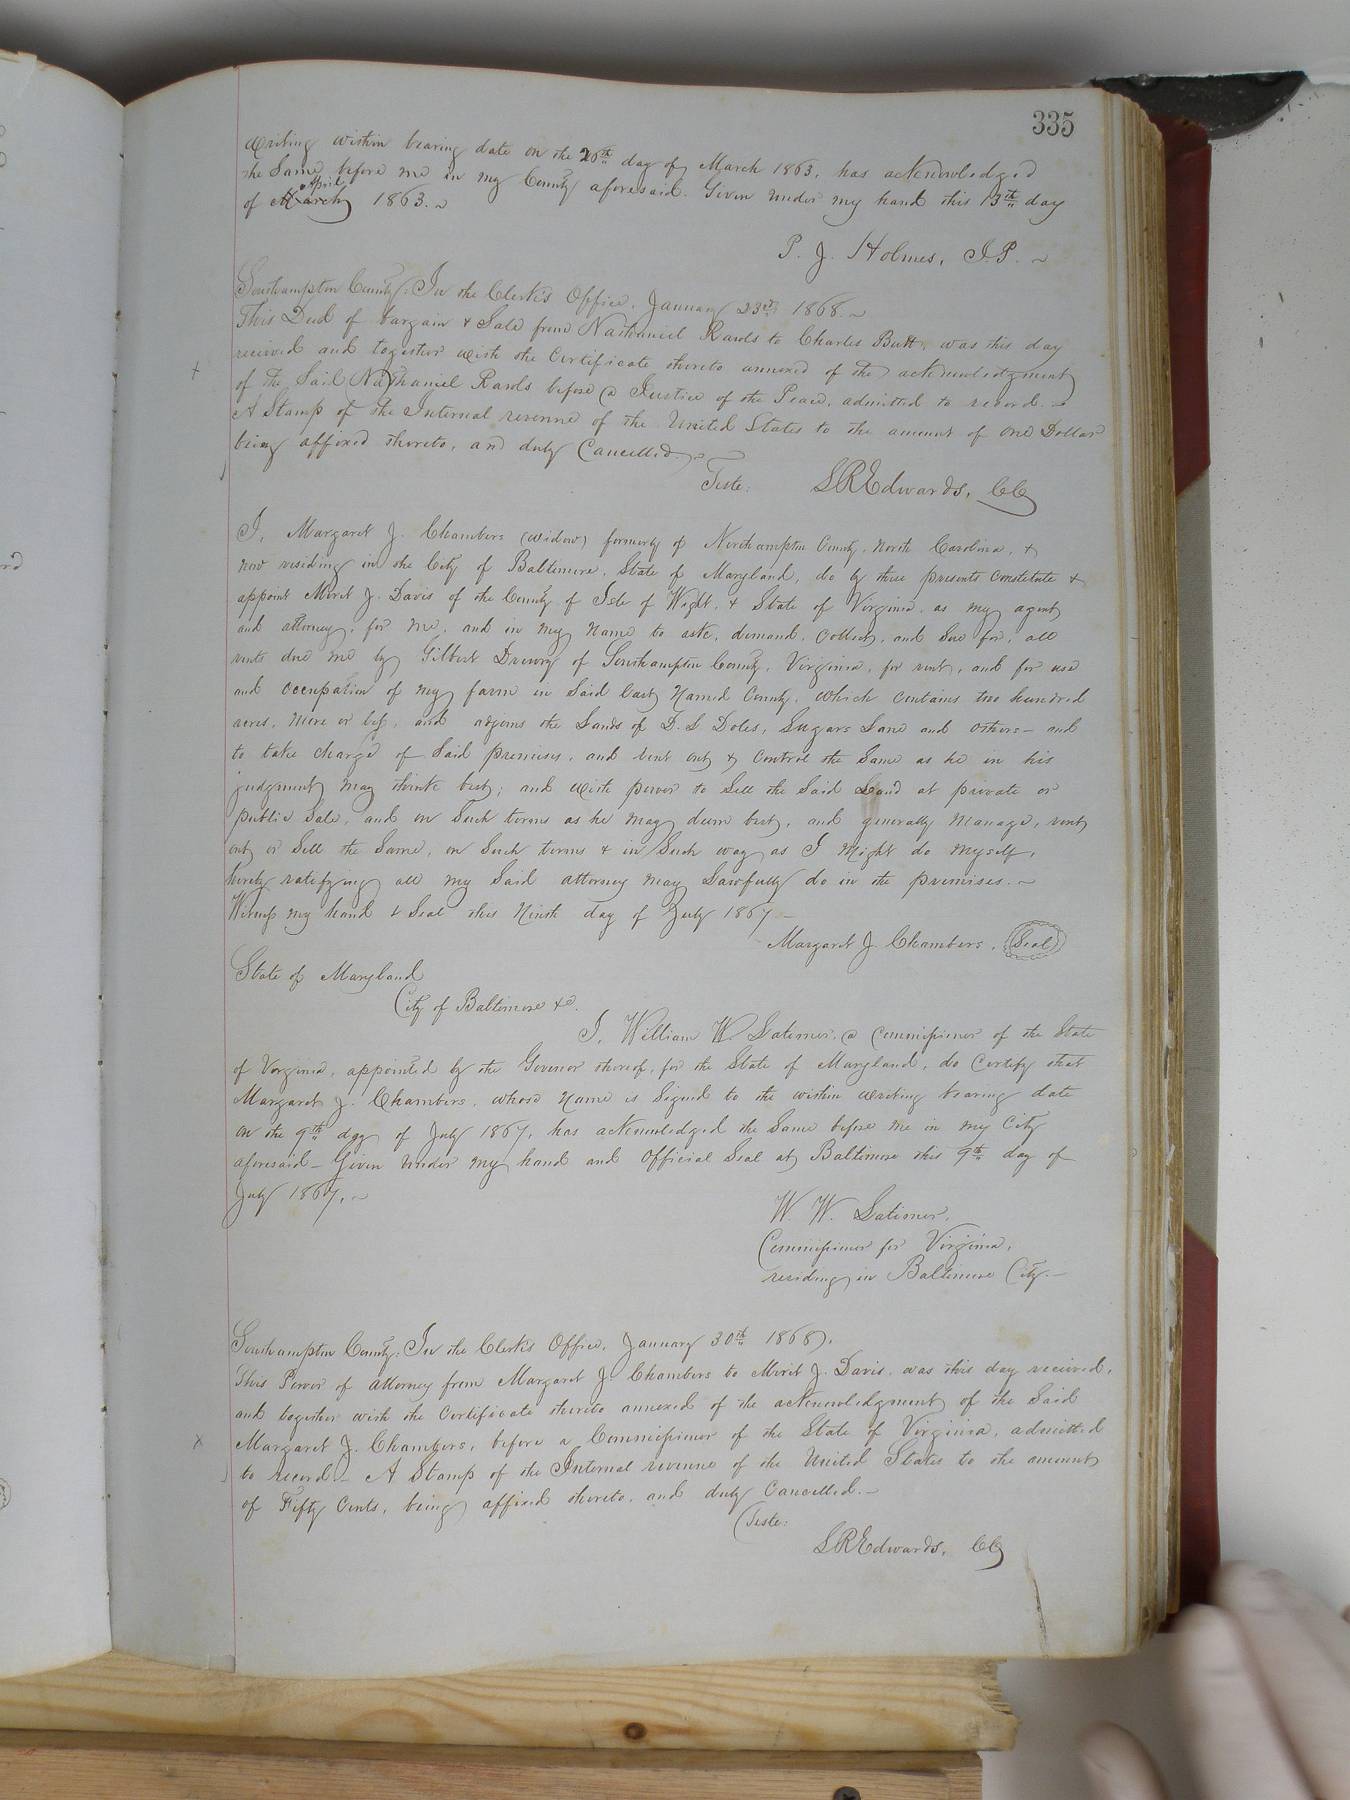 335
writing within bearing date on the 26th day of March 1863, has acknowledged
the Same before me in my County aforesaid. Given under my hand this 13th day
April
of March 1863.
P. J. Holmes, J.P.
Southampton County: In the Clerk's Office, January 23rd 1868.
This Deed of bargain & Sale from Nathaniel Rawls to Charles Butt, was this day
received and together with the Certificate thereto annexed of the acknowledgment
of the Said Nathaniel Rawls before a Justice of the Peace, admitted to record.
A Stamp of the Internal revenue of the United States to the amount of One Dollar
being affixed thereto, and duly Cancelled.
Teste: LREdwards, CC
I, Margaret J. Chambers (widow) formerly of Northampton County, North Carolina, &
now residing in the City of Baltimore, State of Maryland, do by these presents Constitute &
appoint Merit J. Davis of the County of Isle of Wight, & State of Virginia, as my agent
and attorney, for me, and in my Name to ask, demand, Collect, and Sue for, all
rents due me by Gilbert Drewry of Southampton County, Virginia, for rent, and for use
and occupation of my farm in Said last Named County, which contains two hundred
acres, More or less, and adjoins the Lands of D. S. Doles, Sugars Lane and others - and
to take charge of Said premises, and rent out & Control the Same as he in his
judgment may think best; and with power to Sell the Said Land at private or
public Sale, and on Such terms as he may deem best, and generally Manage, rent
out or Sell the Same, on Such terms & in Such way as I Might do Myself,
hereby ratifying all my Said attorney may Lawfully do in the premises.
Witness my hand & Seal this Ninth day of July 1867 -
Margaret J. Chambers. Seal
State of Maryland
City of Baltimore &c.
I, William W. Latimer, a Commissioner of the State
of Virginia, appointed by the Governor thereof, for the State of Maryland, do Certify that
Margaret J. Chambers, whose Name is Signed to the within writing bearing date
on the 9th day of July 1867, has acknowledged the Same before me in my City
aforesaid - Given under my hand and Official Seal at Baltimore this 9th day of
July 1867.
W. W. Latimer,
Commissioner for Virginia,
residing in Baltimore City.
Southampton County: In the Clerk's Office, January 30th 1868.
This Power of attorney from Margaret J. Chambers to Merit J. Davis, was this day received,
and together with the Certificate thereto annexed of the acknowledgment of the Said
Margaret J. Chambers, before a Commissioner of the State of Virginia, admitted
to record - A Stamp of the Internal revenue of the United States to the amount
of Fifty Cents, being affixed thereto, and duly Cancelled.
Teste:
LREdwards, CC